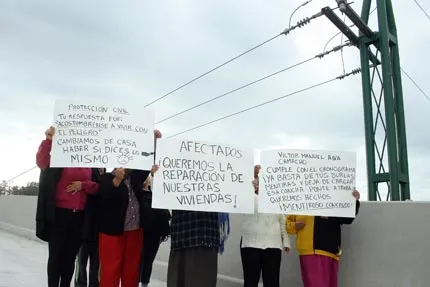 PROTECCIÓN CIVIL
TU RESPUESTA FUE:
"ACOSTÚMBRENSE A VIVIR CON
EL PELIGRO."
CAMBIAMOS DE CASA
HABER SI DICES LO
MISMO
AFECTADOS
QUEREMOS LA
REPARACIÓN DE
NUESTRAS
VIVIENDAS!
VICTOR MANUEL
CAMACHO
CUMPLE CON EL CRONOGRAMA
¡YA BASTA DE TUS BURLAS
MENTIRAS Y DEJA DE CARGAR
ESA PONTE A TRABAJAR
QUEREMOS HECHOS